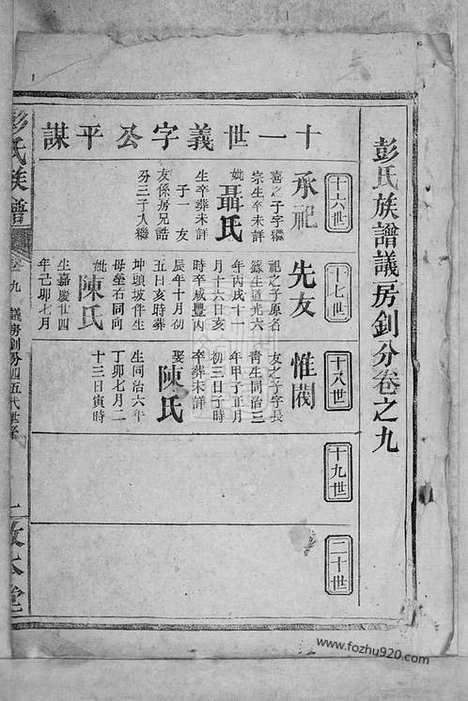 彭氏族譜議房釗分卷之九
十一世義字公平謀
十六世
承祀
喜之子字繼
宗生卒葬未詳
妣聶氏
生卒葬未詳
子一 友
友係房兄誥
分三子入繼
十七世
先友
祀之子原名
蘇生道光六
年丙戌十一
月十六日亥
時卒咸豐丙
辰年十月初
五日亥時葬
坤頭坡伴生
母塋右同向
妣陳氏
生嘉慶廿四
年己卯七月
十八世
惟閥
友之子字長
青生同治三
年甲子正月
初三日子時
卒葬未詳
娶陳氏
生同治六年
丁卯七月二
十三日寅時
十九世
二十世
彭氏族譜
卷九 議房釗分四五代世系
一 敦本堂
www.fozhu920.com